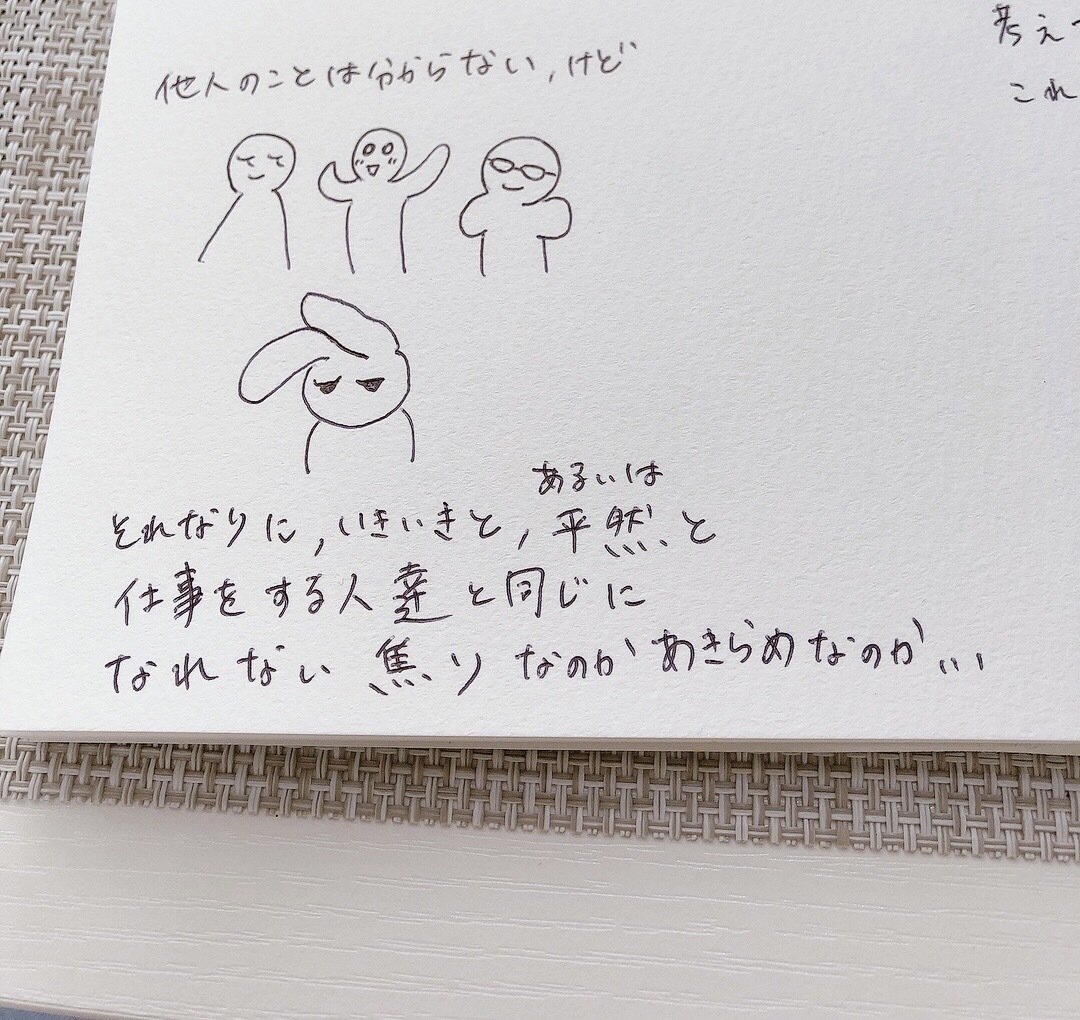 他人のことは分からない,けど
考えて
これ
あるいは
それなりに,いきいきと,平然と
仕事をする人達と同じに
なれない焦りなのかあきらめなのか...